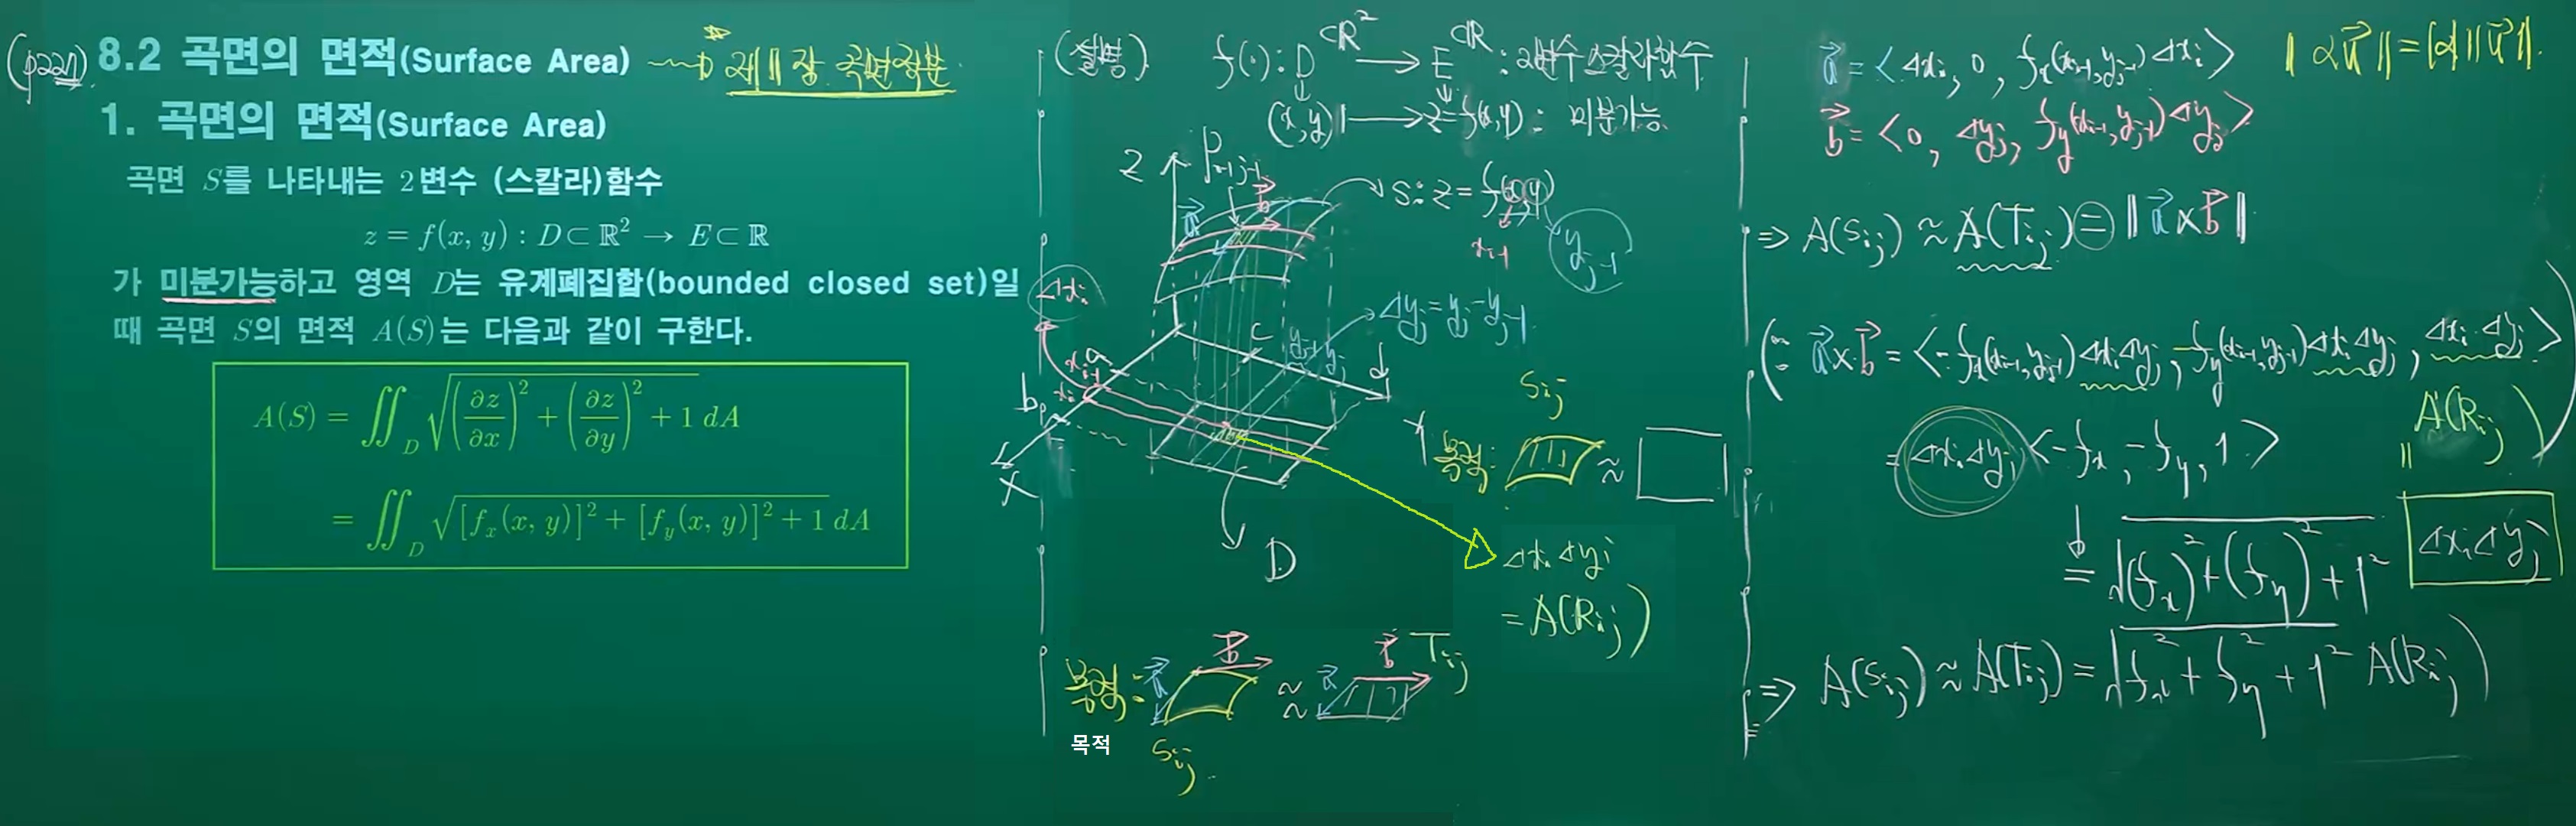 (p221)
8.2 곡면의 면적(Surface Area) → 제11장 곡면적분
1. 곡면의 면적(Surface Area)
곡면 S를 나타내는 2변수 (스칼라)함수
z = f(x, y) : D ⊂ ℝ² → E ⊂ ℝ
가 미분가능하고 영역 D는 유계폐집합(bounded closed set)일
때 곡면 S의 면적 A(S)는 다음과 같이 구한다.
A(S) = ∬_D √((∂z/∂x)² + (∂z/∂y)² + 1) dA
= ∬_D √([f_x(x, y)]² + [f_y(x, y)]² + 1) dA
(설명) f(·) : D ⊂ℝ² → E ⊂ℝ : 2변수 스칼라함수
(x,y) ↦ z=f(x,y) : 미분가능
Z
P_{i-1,j-1}
b⃗
a⃗
S: z = f(x,y)
x_{i-1}
y_{j-1}
Δx_i
Δy_j = y_j - y_{j-1}
a
c
y_{j-1} y_j
d
x_{i-1}
x_i
b
X
Y
D
S_ij
목적: ≈
Δx_i Δy_j
= A(R_ij)
목적: a⃗ b⃗ ≈ a⃗ b⃗ T_ij
목적
S_ij
a⃗ = <Δx_i, 0, f_x(x_{i-1}, y_{j-1})Δx_i>
‖αu⃗‖ = |α|‖u⃗‖.
b⃗ = <0, Δy_j, f_y(x_{i-1}, y_{j-1})Δy_j>
⇒ A(S_ij) ≈ A(T_ij) = ‖a⃗ × b⃗‖
(∵ a⃗ × b⃗ = <-f_x(x_{i-1}, y_{j-1})Δx_iΔy_j, -f_y(x_{i-1}, y_{j-1})Δx_iΔy_j, Δx_iΔy_j>
= Δx_iΔy_j <-f_x, -f_y, 1>
A(R_ij)
‖
Δx_iΔy_j
= √((f_x)² + (f_y)² + 1²)
)
⇒ A(S_ij) ≈ A(T_ij) = √(f_x² + f_y² + 1²) A(R_ij)